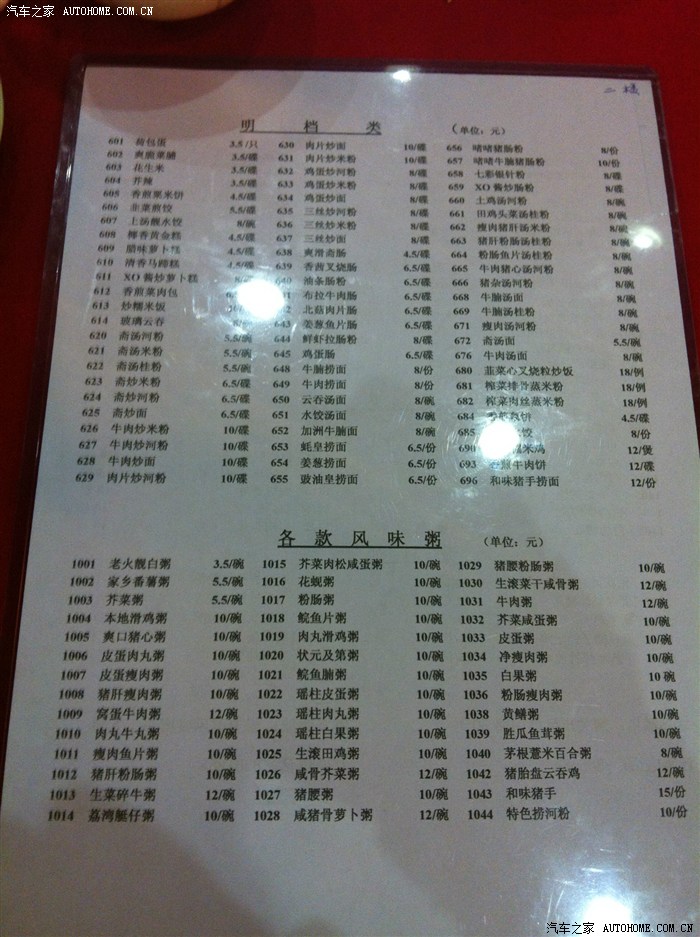 汽车之家 AUTOHOME.COM.CN
二楼
明 档 类 (单位：元)
601 荷包蛋 3.5/只
602 爽脆菜脯 3.5/碟
603 花生米 3.5/碟
604 芥辣 3.5/碟
605 香煎粟米饼 4.5/碟
606 韭菜煎饺 5.5/碟
607 上汤靓水饺 8/碗
608 椰香黄金糕 4.5/碟
609 腊味萝卜糕 4.5/碟
610 清香马蹄糕 4.5/碟
611 XO 酱炒萝卜糕
612 香煎菜肉包
613 炒糯米饭
614 玻璃云吞
620 斋汤河粉 5.5/碗
621 斋汤米粉 5.5/碗
622 斋汤桂粉 5.5/碗
623 斋炒米粉 6.5/碟
624 斋炒河粉 6.5/碟
625 斋炒面 6.5/碟
626 牛肉炒米粉 10/碟
627 牛肉炒河粉 10/碟
628 牛肉炒面 10/碟
629 肉片炒河粉 10/碟
630 肉片炒面 10/碟
631 肉片炒米粉 10/碟
632 鸡蛋炒河粉 8/碟
633 鸡蛋炒米粉 8/碟
634 鸡蛋炒面 8/碟
635 三丝炒河粉 8/碟
636 三丝炒米粉 8/碟
637 三丝炒面 8/碟
638 爽滑斋肠 4.5/碟
639 香茜叉烧肠 6.5/碟
640 油条肠粉 8/碟
641 布拉牛肉肠 6.5/碟
642 北菇肉片肠 6.5/碟
643 姜葱鱼片肠 6.5/碟
644 鲜虾拉肠粉 8/碟
645 鸡蛋肠 6.5/碟
648 牛腩捞面 8/份
649 牛肉捞面 8/份
650 云吞汤面 8/碗
651 水饺汤面 8/碗
652 加洲牛腩面 8/碗
653 蚝皇捞面 6.5/份
654 姜葱捞面 6.5/份
655 豉油皇捞面 6.5/份
656 啫啫猪肠粉 8/份
657 啫啫牛腩猪肠粉 10/份
658 七彩银针粉 8/碟
659 XO 酱炒肠粉 8/碟
660 土鸡汤河粉 8/碗
661 田鸡头菜汤桂粉 8/碗
662 瘦肉猪肝汤米粉 8/碗
663 猪肝粉肠汤桂粉 8/碗
664 粉肠鱼片汤桂粉 8/碗
665 牛肉猪心汤河粉 8/碗
666 猪杂汤河粉 8/碗
668 牛腩汤面 8/碗
669 牛腩汤桂粉 8/碗
671 瘦肉汤河粉 8/碗
672 斋汤面 5.5/碗
676 牛肉汤面 8/碗
680 韮菜心叉烧粒炒饭 18/例
681 榨菜排骨蒸米粉 18/例
682 榨菜肉丝蒸米粉 18/例
684 4.5/碟
685 8/份
690 12/煲
693 牛肉饼 12/碟
696 和味猪手捞面 12/份
各 款 风 味 粥 (单位：元)
1001 老火靓白粥 3.5/碗
1002 家乡番薯粥 5.5/碗
1003 芥菜粥 5.5/碗
1004 本地滑鸡粥 10/碗
1005 爽口猪心粥 10/碗
1006 皮蛋肉丸粥 10/碗
1007 皮蛋瘦肉粥 10/碗
1008 猪肝瘦肉粥 10/碗
1009 窝蛋牛肉粥 12/碗
1010 肉丸牛丸粥 10/碗
1011 瘦肉鱼片粥 10/碗
1012 猪肝粉肠粥 10/碗
1013 生菜碎牛粥 12/碗
1014 荔湾艇仔粥 10/碗
1015 芥菜肉松咸蛋粥 10/碗
1016 花蚬粥 10/碗
1017 粉肠粥 10/碗
1018 鲩鱼片粥 10/碗
1019 肉丸滑鸡粥 10/碗
1020 状元及第粥 10/碗
1021 鲩鱼腩粥 10/碗
1022 瑶柱皮蛋粥 10/碗
1023 瑶柱肉丸粥 10/碗
1024 瑶柱白果粥 10/碗
1025 生滚田鸡粥 10/碗
1026 咸骨芥菜粥 12/碗
1027 猪腰粥 10/碗
1028 咸猪骨萝卜粥 12/碗
1029 猪腰粉肠粥 10/碗
1030 生滚菜干咸骨粥 12/碗
1031 牛肉粥 12/碗
1032 芥菜咸蛋粥 10/碗
1033 皮蛋粥 10/碗
1034 净瘦肉粥 10/碗
1035 白果粥 10 碗
1036 粉肠瘦肉粥 10/碗
1038 黄鳝粥 10/碗
1039 胜瓜鱼茸粥 10/碗
1040 茅根薏米百合粥 8/碗
1042 猪胎盘云吞鸡 12/碗
1043 和味猪手 15/份
1044 特色捞河粉 10/份
汽车之家 AUTOHOME.COM.CN